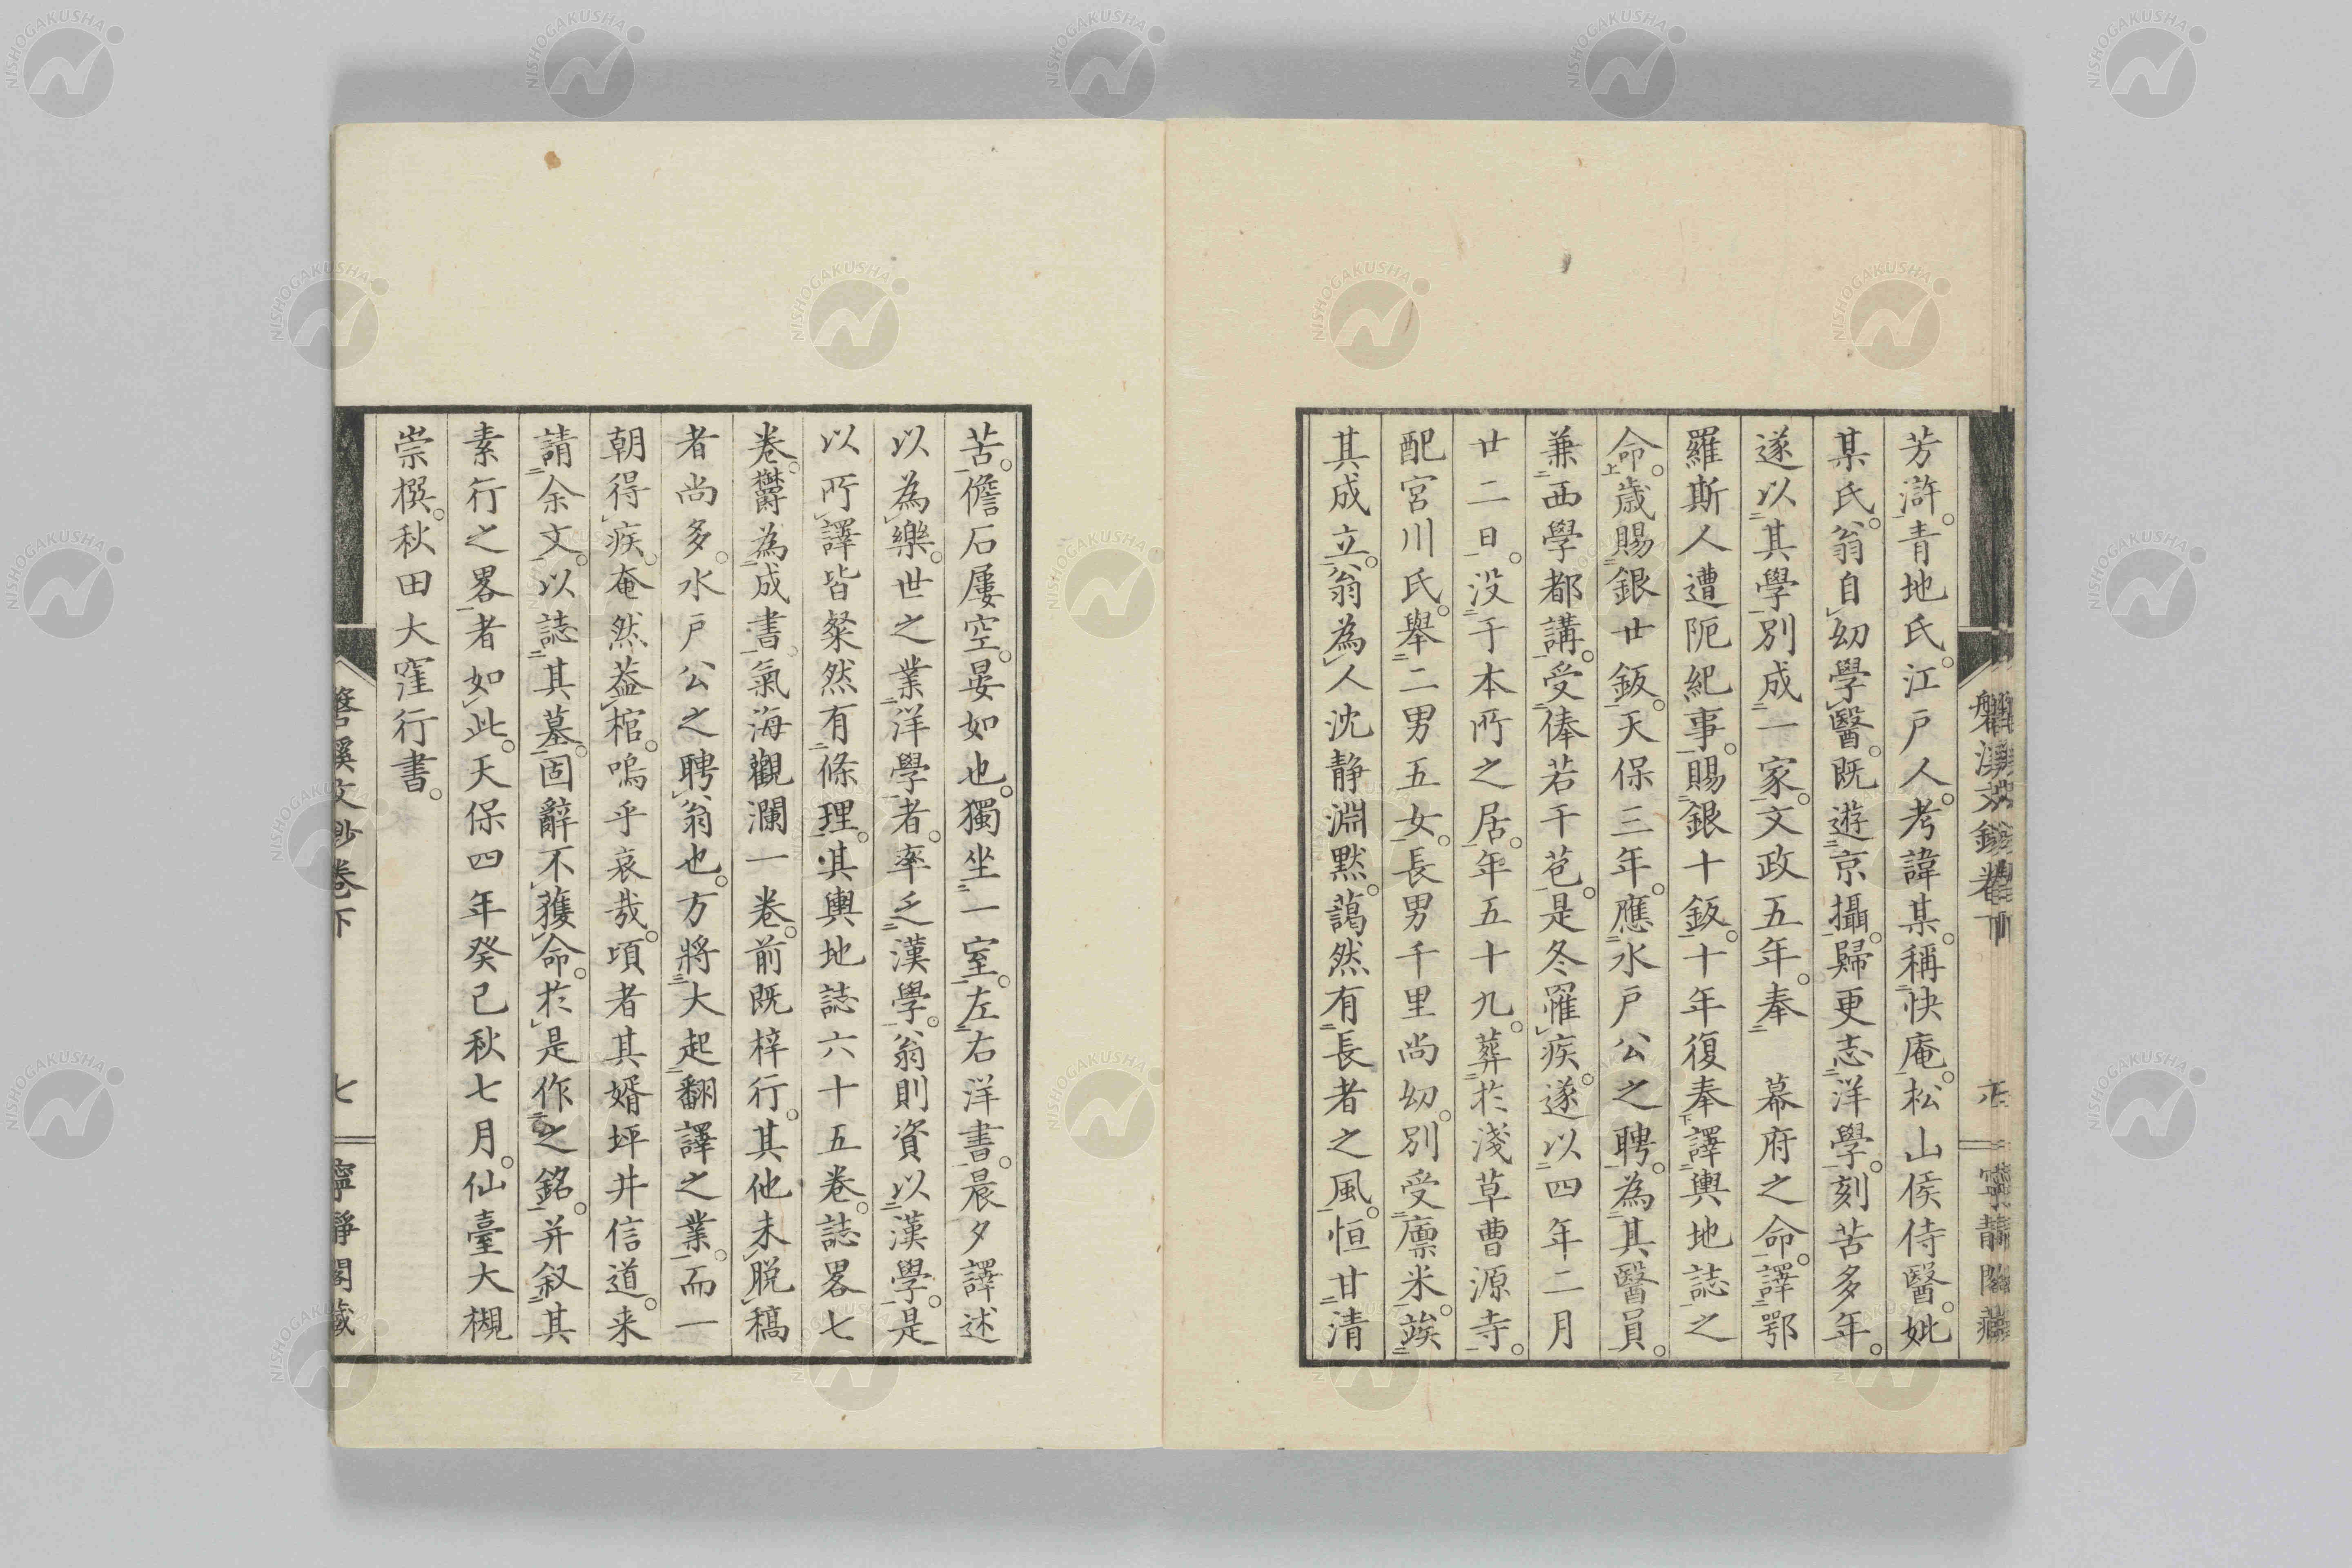 芳滸。青地氏。江戸人。考諱某。稱快庵。松山侯侍醫。妣
某氏。翁自幼學醫。既遊京攝。歸更志洋學。刻苦多年。
遂以其學別成一家。文政五年。奉　幕府之命。譯鄂
羅斯人遭阨紀事。賜銀十鈑。十年復奉譯輿地誌之
命。歲賜銀廿鈑。天保三年。應水戸公之聘。為其醫員。
兼西學都講。受俸若干苞。是冬罹疾。遂以四年二月
廿二日。没于本所之居。年五十九。葬於淺草曹源寺。
配宮川氏。舉二男五女。長男千里尚幼。別受廩米。竢
其成立。翁為人沈靜淵默。藹然有長者之風。恒甘清
苦。儋石屢空。晏如也。獨坐一室。左右洋書。晨夕譯述
以為樂。世之業洋學者。率乏漢學。翁則資以漢學。是
以所譯皆粲然有條理。其輿地誌六十五卷。誌畧七
卷。欝為成書。氣海觀瀾一卷。前既梓行。其他未脱稿
者尚多。水戸公之聘翁也。方將大起翻譯之業。而一
朝得疾。奄然蓋棺。嗚乎哀哉。頃者其婿坪井信道。来
請余文。以誌其墓。固辭不獲命。於是作之銘。并叙其
素行之畧者如此。天保四年癸巳秋七月。仙臺大槻
崇撰。秋田大窪行書。
磐溪文鈔卷下
七
寧靜閣藏
NISHOGAKUSHA